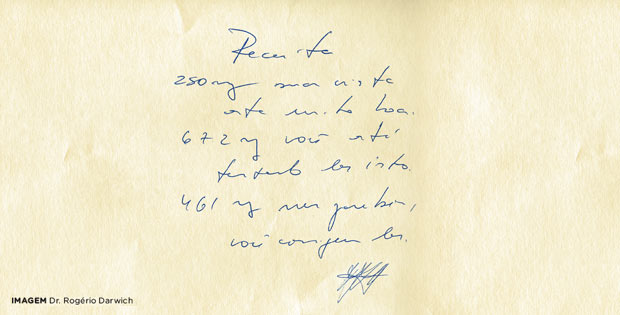 Receita
250mg sua vista
está muito boa.
672 mg você está
tentando ler isto.
461 mg parabéns,
você ler.
IMAGEM Dr. Rogério Darwich